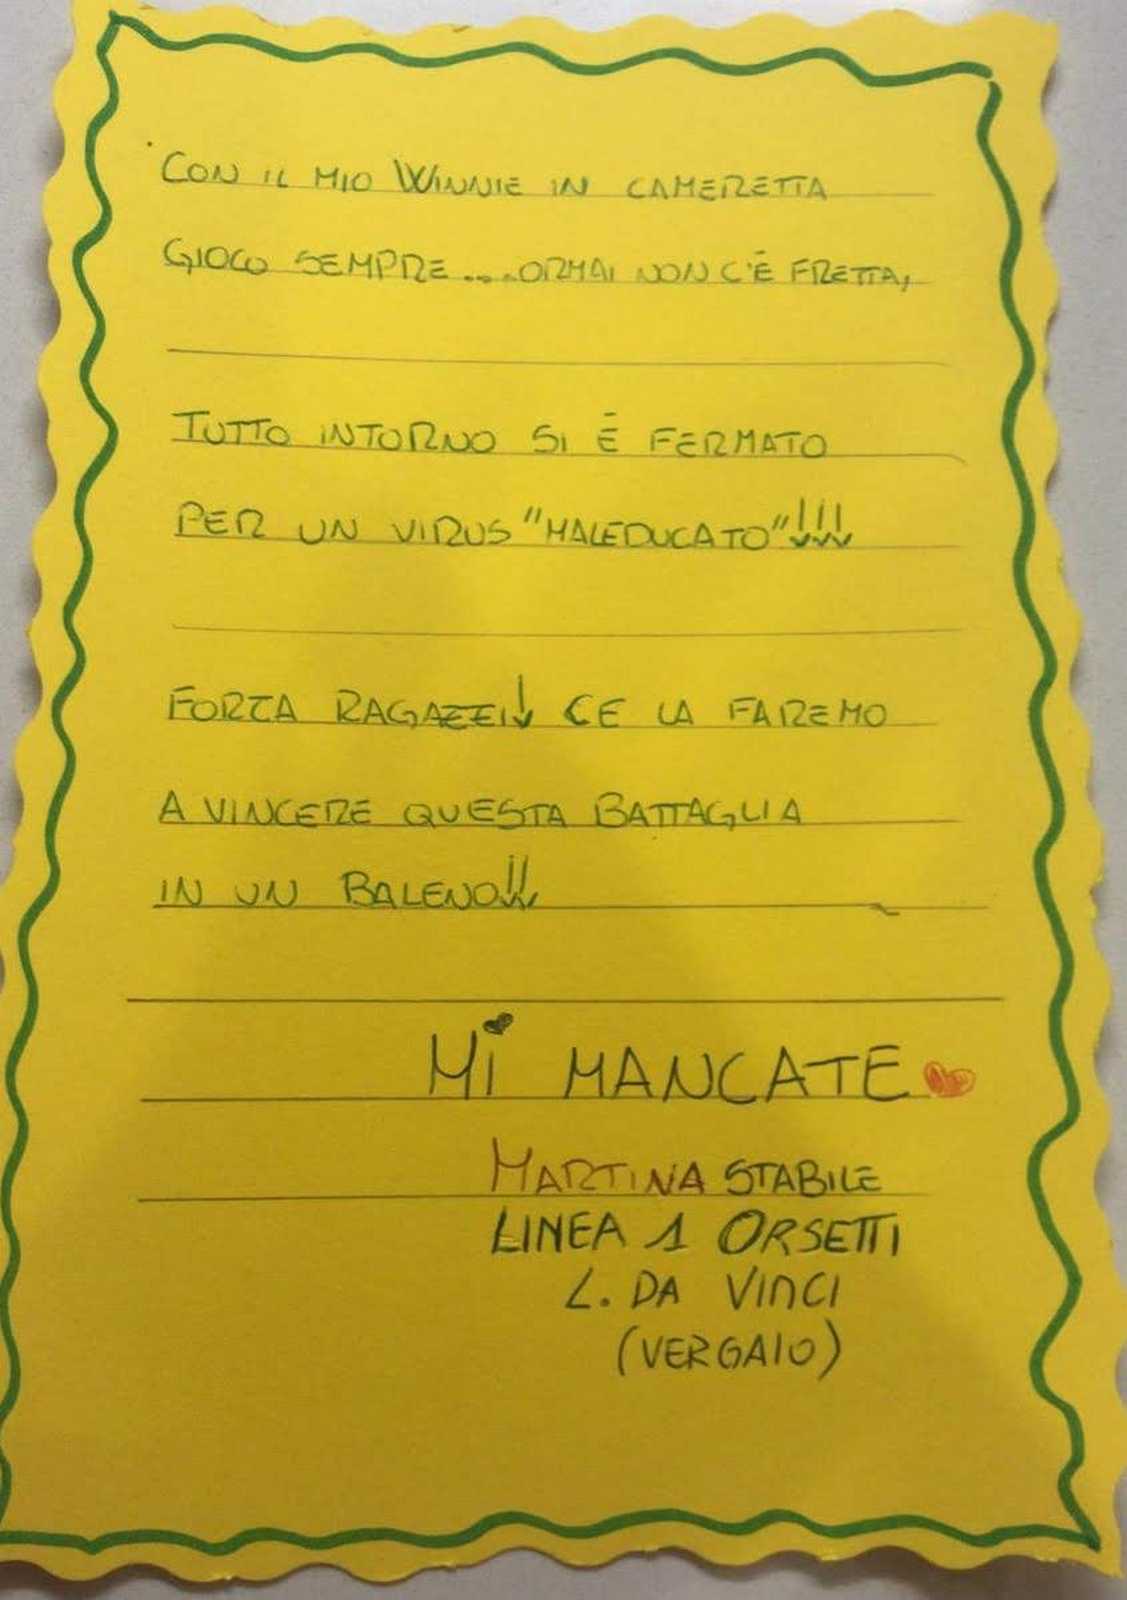 CON IL MIO WINNIE IN CAMERETTA
GIOCO SEMPRE.....ORMAI NON C'È FRETTA,
TUTTO INTORNO SI È FERMATO
PER UN VIRUS "MALEDUCATO"!!!
FORZA RAGAZZI! CE LA FAREMO
A VINCERE QUESTA BATTAGLIA
IN UN BALENO!!
Mi MANCATE
MARTINA STABILE
LINEA 1 ORSETTI
L. DA VINCI
(VERGAIO)